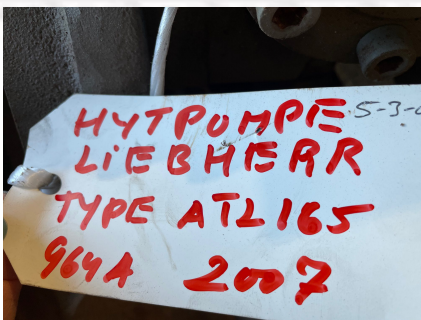 HYTPOMPE 5-3-
LiEBHERR
TYPE ATL165
964A 2007